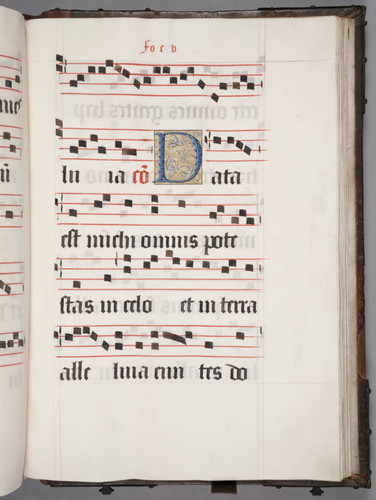 fo c v
lu ia cō Data
est michi omnis pote
stas in celo et in terra
alle luia eun tes do